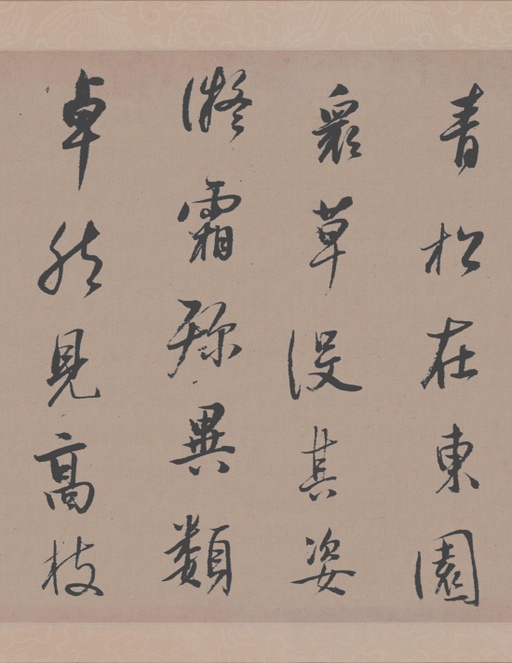 青松在東園
衆草没其姿
凝霜殄異類
卓然見高枝